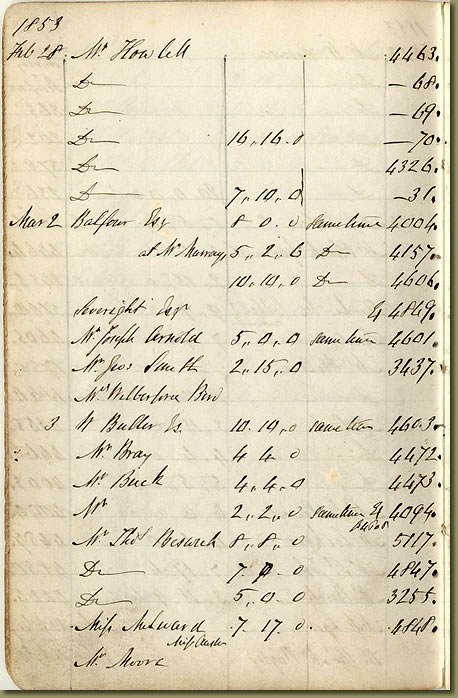 1853
Feb 28 Mr Howlett 4463.
Do — 68.
Do — 69.
Do 16,,16.0 — 70.
Do 4326.
Do 7,,10,,0 — 31.
Mar 2 Balfour Esq 8 0.0 sametime 4004.
at Mr Murrays 5,,2,,6 Do 4157.
10,,10,,0 Do 4606.
Esq 4849.
Mr Joseph Arnold 5,,0,,0 sametime 4601.
Mr Geos Smith 2,,15,,0 3437.
Mrs Wilberforce Bird
3 W Butler Es. 10.10,,0 sametime 4603.
Mr Bray 4 4.0 4472.
Mr Buck 4,,4,,0 4473.
Mr 2,,2,,0 sametime 4094.
Mr Thos Beswick 8,,8,,0 5117.
Do 7. 0 4847.
Do 5,,0.0 3255.
Miss 7 17.0 4848.
Miss Austen
Mr Moore